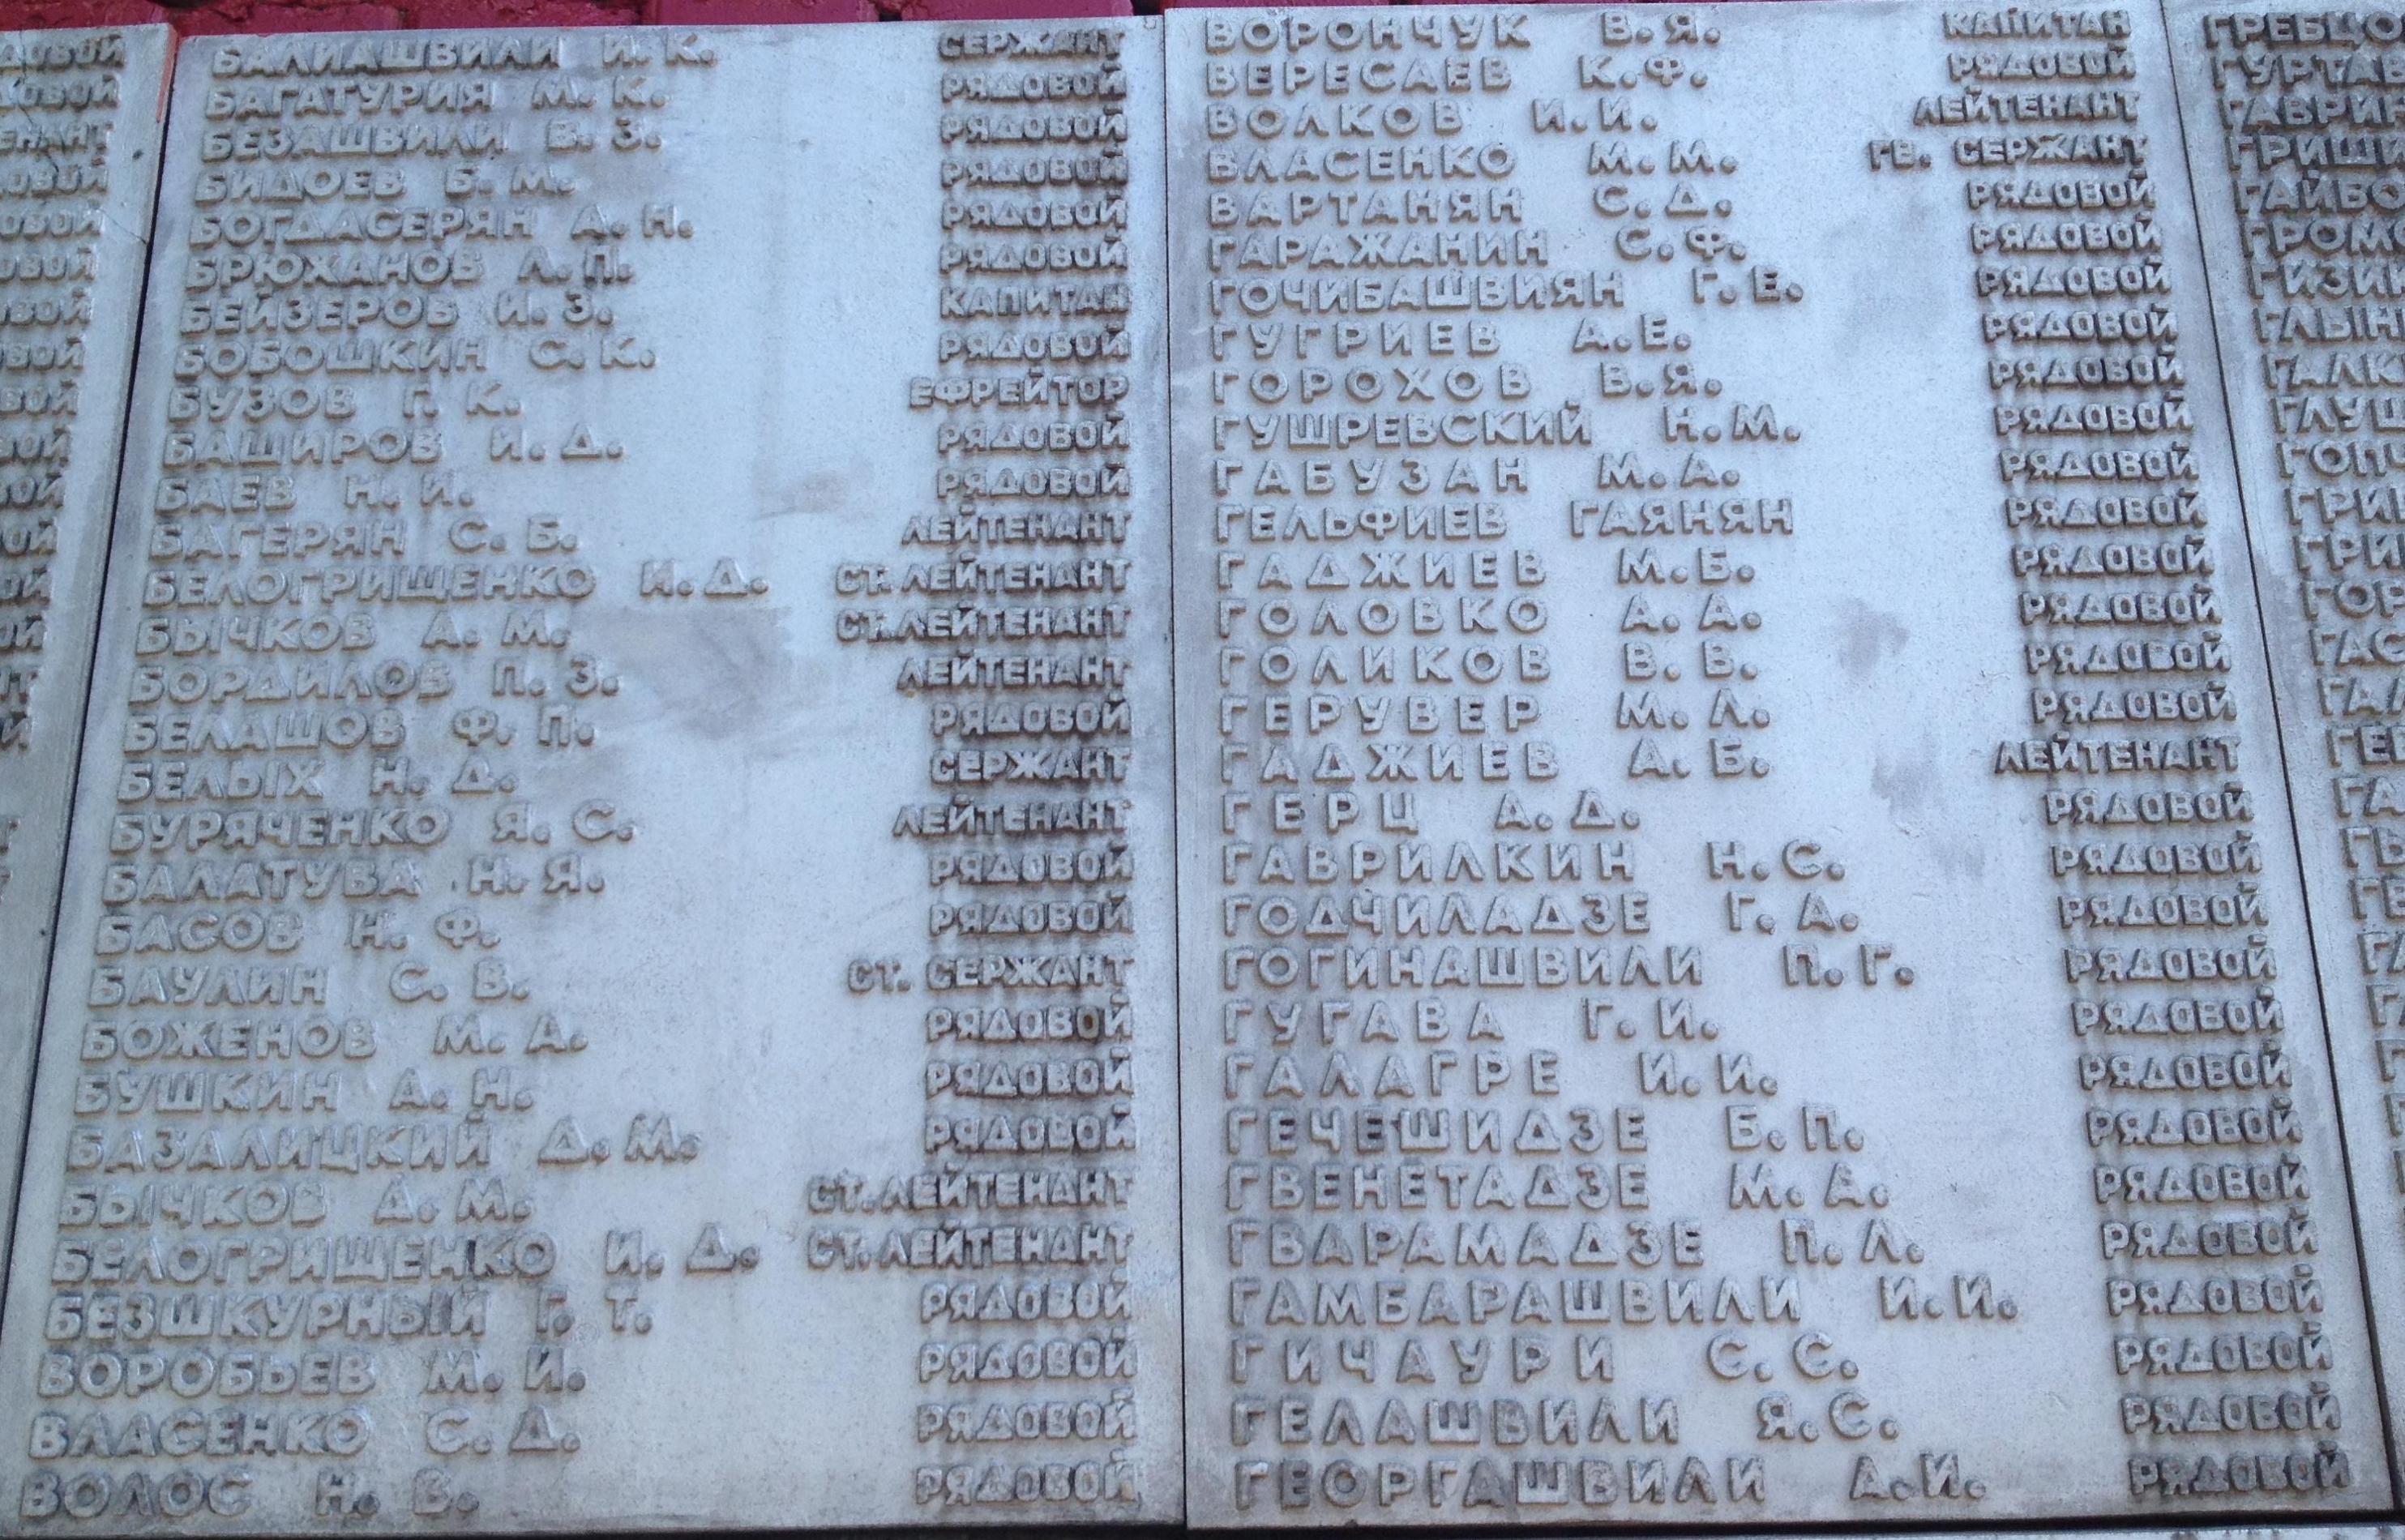 БАЛИАШВИЛИ И. К. СЕРЖАНТ
БАГАТУРИЯ М. К. РЯДОВОЙ
БЕЗАШВИЛИ В. З. РЯДОВОЙ
БИДОЕВ Б. М. РЯДОВОЙ
БОГДАСЕРЯН А. Н. РЯДОВОЙ
БРЮХАНОВ Л. П. РЯДОВОЙ
БЕЙЗЕРОВ И. З. КАПИТАН
БОБОШКИН С. К. РЯДОВОЙ
БУЗОВ Г. К. ЕФРЕЙТОР
БАШИРОВ И. Д. РЯДОВОЙ
БАЕВ Н. И. РЯДОВОЙ
БАГЕРЯН С. Б. ЛЕЙТЕНАНТ
БЕЛОГРИЩЕНКО И. Д. СТ. ЛЕЙТЕНАНТ
БЫЧКОВ А. М. СТ. ЛЕЙТЕНАНТ
БОРДИЛОВ П. З. ЛЕЙТЕНАНТ
БЕЛАШОВ Ф. П. РЯДОВОЙ
БЕЛЫХ Н. Д. СЕРЖАНТ
БУРЯЧЕНКО Я. С. ЛЕЙТЕНАНТ
БАЛАТУВА Н. Я. РЯДОВОЙ
БАСОВ Н. Ф. РЯДОВОЙ
БАУЛИН С. В. СТ. СЕРЖАНТ
БОЖЕНОВ М. А. РЯДОВОЙ
БУШКИН А. Н. РЯДОВОЙ
БАЗАЛИЦКИЙ Д. М. РЯДОВОЙ
БЫЧКОВ А. М. СТ. ЛЕЙТЕНАНТ
БЕЛОГРИЩЕНКО И. Д. СТ. ЛЕЙТЕНАНТ
БЕЗШКУРНЫЙ Г. Т. РЯДОВОЙ
ВОРОБЬЕВ М. И. РЯДОВОЙ
ВЛАСЕНКО С. Д. РЯДОВОЙ
ВОЛОС Н. В. РЯДОВОЙ
ВОРОНЧУК В. Я. КАПИТАН
ВЕРЕСАЕВ К. Ф. РЯДОВОЙ
ВОЛКОВ И. И. ЛЕЙТЕНАНТ
ВЛАСЕНКО М. М. ГВ. СЕРЖАНТ
ВАРТАНЯН С. Д. РЯДОВОЙ
ГАРАЖАНИН С. Ф. РЯДОВОЙ
ГОЧИБАШВИЯН Г. Е. РЯДОВОЙ
ГУГРИЕВ А. Е. РЯДОВОЙ
ГОРОХОВ В. Я. РЯДОВОЙ
ГУШРЕВСКИЙ Н. М. РЯДОВОЙ
ГАБУЗАН М. А. РЯДОВОЙ
ГЕЛЬФИЕВ ГАЯНЯН РЯДОВОЙ
ГАДЖИЕВ М. Б. РЯДОВОЙ
ГОЛОВКО А. А. РЯДОВОЙ
ГОЛИКОВ В. В. РЯДОВОЙ
ГЕРУВЕР М. Л. РЯДОВОЙ
ГАДЖИЕВ А. Б. ЛЕЙТЕНАНТ
ГЕРЦ А. Д. РЯДОВОЙ
ГАВРИЛКИН Н. С. РЯДОВОЙ
ГОДЧИЛАДЗЕ Г. А. РЯДОВОЙ
ГОГИНАШВИЛИ П. Г. РЯДОВОЙ
ГУГАВА Г. И. РЯДОВОЙ
ГАЛАГРЕ И. И. РЯДОВОЙ
ГЕЧЕШИДЗЕ Б. П. РЯДОВОЙ
ГВЕНЕТАДЗЕ М. А. РЯДОВОЙ
ГВАРАМАДЗЕ П. Л. РЯДОВОЙ
ГАМБАРАШВИЛИ И. И. РЯДОВОЙ
ГИЧАУРИ С. С. РЯДОВОЙ
ГЕЛАШВИЛИ Я. С. РЯДОВОЙ
ГЕОРГАШВИЛИ А. И. РЯДОВОЙ